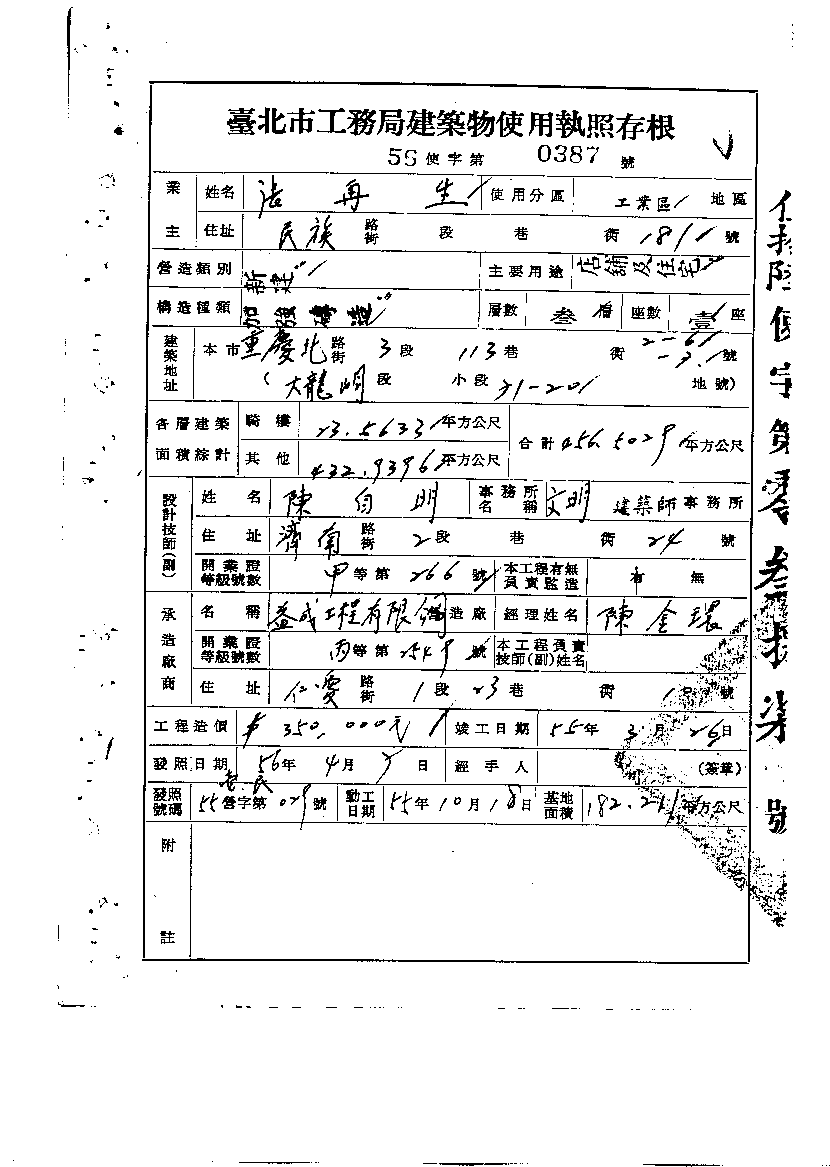 臺北市工務局建築物使用執照存根
56使字第 0387 號
業主 姓名 張再生 使用分區 工業區 地區
住址 民族 路街 段 巷 衖 181 號
營造類別 新建 主要用途 店舖及住宅
構造種類 加強磚造 層數 叁層 座數 壹座
建築地址 本市 重慶北 路街 3段 113巷 衖 號
(大龍峒段 小段 31-201 地號)
各層建築面積綜計 騎樓 23.5633 平方公尺 合計 456.5029 平方公尺
其他 432.9396 平方公尺
設計技師(副) 姓名 陳自明 事務所名稱 文明 建築師事務所
住址 濟南 路街 2段 巷 衖 24 號
開業證等級號數 甲等第 266 號 本工程有無負責監造 有 無
承造廠商 名稱 益成工程有限公司 營造廠 經理姓名 陳金環
開業證等級號數 丙等第 2549 號 本工程負責技師(副)姓名
住址 仁愛 路街 1段 23巷 衖 號
工程造價 $350,000元 竣工日期 55年 3月 26日
發照日期 56年 4月 日 經手人 (簽章)
發照號碼 55營字第 029 號 動工日期 55年10月18日 基地面積 182.211 平方公尺
附註
伍拾陸使字第零叁捌柒號